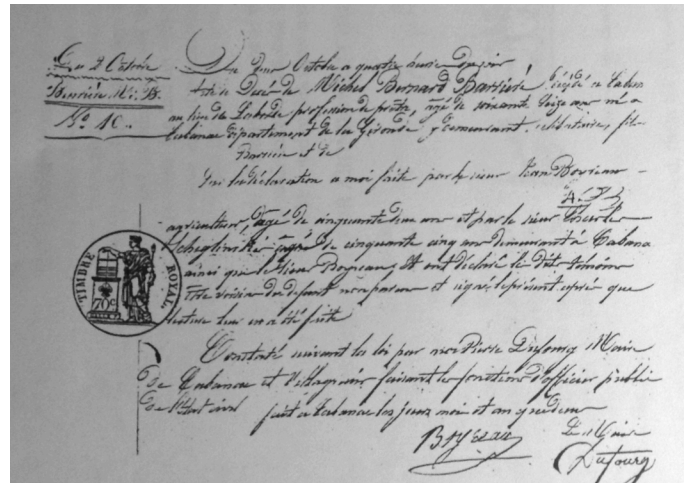 Du 2 Octobre
Barrière M. B.
No 10.
Du deux Octobre a quatre heure du soir
Acte de Décé de Michel Bernard Barrière décédé a Cabanac
au lieu de Labode profession de prêtre, agé de soixante seize ans né a
Cabanac département de la Gironde y demeurant, célibataire, fils
Barrière
Sur la déclaration a moi faite par le sieur Jean Boyreau
agriculteur, agé de cinquante deux ans et par le sieur
agé de cinquante cinq ans demeurant à Cabanac
ainsi que le sieur Boyreau, et ont déclaré le dit témoin
être voisin du defunt non parent et signé le présent après que
lecture leur en a été faite
TIMBRE ROYAL
70c
Constaté suivant la loi par moi Pierre Dufourg Maire
de Cabanac et Villagrains faisant les fonctions d'officier public
de l'état civil fait a Cabanac les jour moi et an que dessus
Boyreau
Le Maire
Dufourg